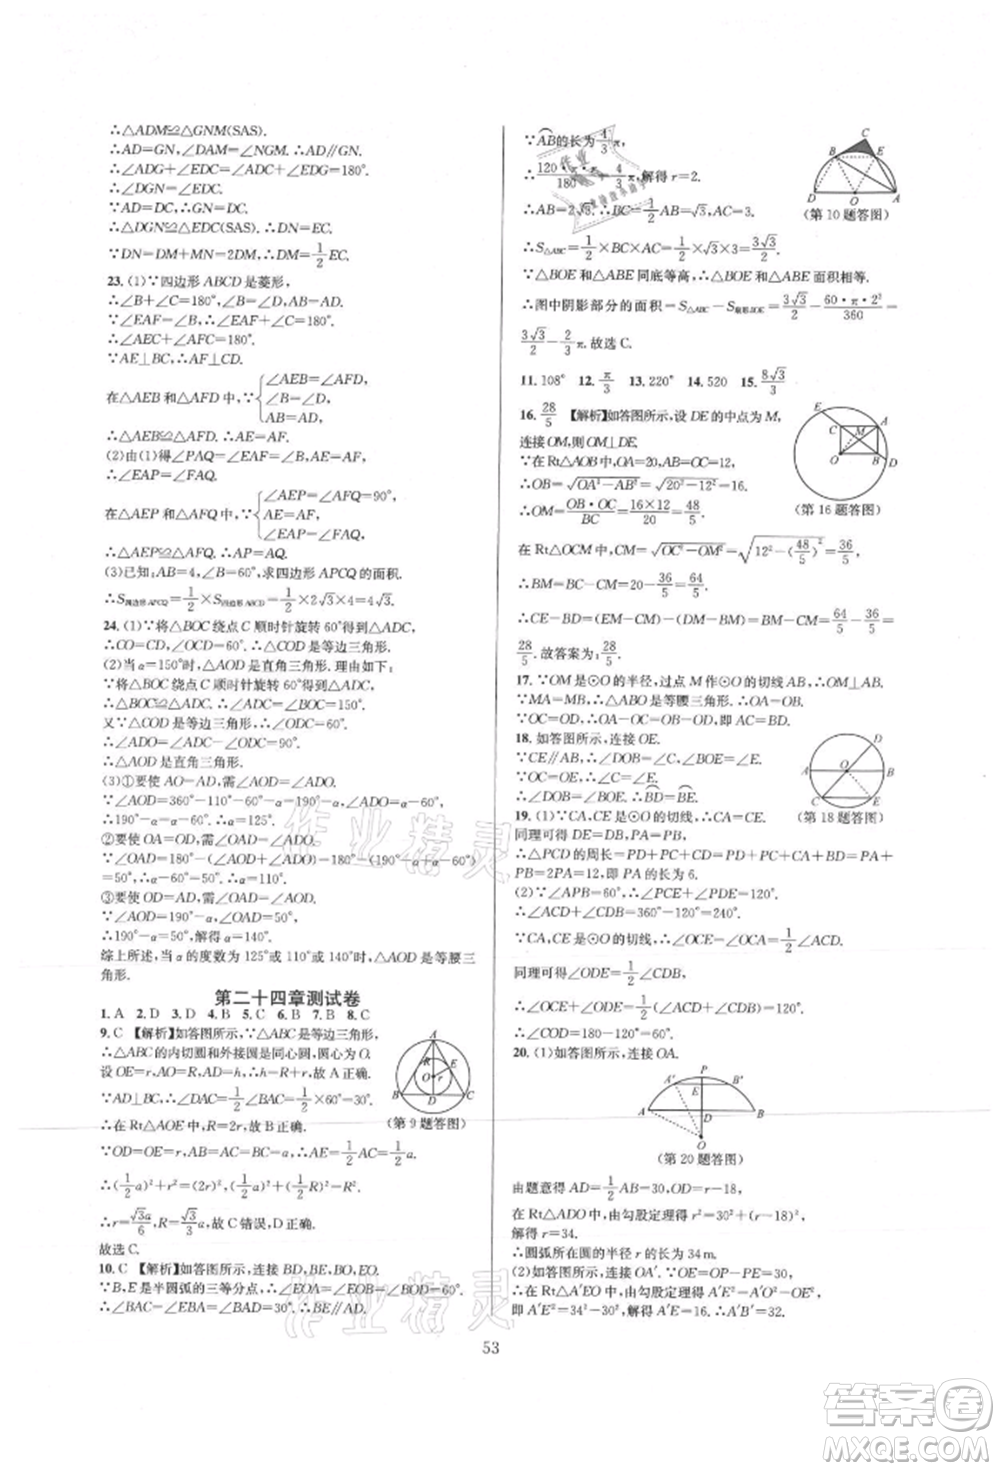 ∴△ADM≌△GNM(SAS).
∴AD=GN,∠DAM=∠NGM.∴AD∥GN.
∴∠ADG+∠DGN=∠ADG+∠EDC=180°.
∴∠DGN=∠EDC.
∵AD=DC,∴DC=GN.
∴△DGN≌△EDC(SAS).∴DN=EC.
∵DN=DM+MN,∴DM=1/2EC.
23.(1)∵四边形ABCD是菱形,
∴∠B+∠C=180°,∠B=∠D.
∵∠EAF=∠B,∴∠EAF+∠C=180°.
∴∠AEC+∠AFC=180°.
∵AE⊥BC,∴AF⊥CD.
在△AEB和△AFD中,∵{∠AEB=∠AFD, ∠B=∠D, AB=AD,
∴△AEB≌△AFD.∴AE=AF.
(2)由(1)得∠PAQ=∠EAF=∠B,
∴∠EAP=∠FAQ.
在△AEP和△AFQ中,∵{∠AEP=∠AFQ=90°, AE=AF, ∠EAP=∠FAQ,
∴△AEP≌△AFQ.∴AP=AQ.
(3)已知:AB=4,∠B=60°,求四边形APCQ的面积.
∴S四边形APCQ=1/2×S四边形ABCD=1/2×2√3×4=4√3.
24.(1)∵将△BOC绕点C顺时针旋转60°得到△ADC,
∴CO=CD,∠OCD=60°.∴△COD是等边三角形.
(2)当α=150°时,△AOD是直角三角形.理由如下:
∵将△BOC绕点C顺时针旋转60°得到△ADC,
∴△BOC≌△ADC.∴∠ADC=∠BOC=150°.
又∵△COD是等边三角形,∴∠ODC=60°.
∴∠ADO=∠ADC-∠ODC=90°.
∴△AOD是直角三角形.
(3)①要使AO=AD,需∠AOD=∠ADO,
∵∠AOD=360°-110°-60°-α=190°-α,∠ADO=α-60°,
∴190°-α=α-60°.∴α=125°.
②要使OA=OD,需∠OAD=∠ADO.
∵∠OAD=180°-(∠AOD+∠ADO)=180°-(190°-α+α-60°)
=50°,∴α-60°=50°.∴α=110°.
③要使OD=AD,需∠OAD=∠AOD.
∵∠AOD=190°-α,∠OAD=50°,
∴190°-α=50°,解得α=140°.
综上所述,当α的度数为125°或110°或140°时,△AOD是等腰三
角形.
第二十四章测试卷
1. A 2. D 3. C 4. B 5. C 6. D 7. B 8. C
9. C 【解析】如答图所示,∵△ABC是等边三角形,
∴△ABC的内切圆和外接圆是同心圆,圆心为O.
设OE=r,AO=R,AD=h,∴h=R+r,故A正确.
∵AD⊥BC,∴∠DAC=1/2∠BAC=1/2×60°=30°.
∴在Rt△AOE中,R=2r,故B正确.
(第9题答图)
∵OD=OE=r,AB=AC=BC=a,∴AE=1/2AC=1/2a.
∴(1/2a)²+r²=(2r)²,(1/2a)²+(1/2R)²=R².
∴r=√3a/6,R=√3/3a,故C错误,D正确.
故选C.
10. C 【解析】如答图所示,连接BD,BE,BO,EO.
∵B,E是半圆弧的三等分点,∴∠EOA=∠EOB=∠BOD=60°.
∴∠BAC=∠EBA=∠BAD=30°.∴BE∥AD.
∵AB的长为4/3π,
∴120·π·r/180=4/3π,解得r=2.
∴AB=2√3.∴BC=1/2AB=√3,AC=3.
(第10题答图)
∴S△ABC=1/2×BC×AC=1/2×√3×3=3√3/2.
∵△BOE和△ABE同底等高,∴△BOE和△ABE面积相等.
∴图中阴影部分的面积=S△ABC-S扇形BOE=3√3/2-60·π·2²/360=
3√3/2-2/3π.故选C.
11. 108° 12. π/3 13. 220° 14. 520 15. 8√3/3
16. 28/5 【解析】如答图所示,设DE的中点为M,
连接OM,则OM⊥DE.
∵在Rt△AOB中,OA=20,AB=OC=12,
∴OB=√OA²-AB²=√20²-12²=16.
∴OM=OB·OC/BC=16×12/20=48/5.
(第16题答图)
在Rt△OCM中,CM=√OC²-OM²=√12²-(48/5)²=36/5.
∴BM=BC-CM=20-36/5=64/5.
∴CE-BD=(EM-CM)-(DM-BM)=BM-CM=64/5-36/5=
28/5.故答案为:28/5.
17. ∵OM是⊙O的半径,过点M作⊙O的切线AB,∴OM⊥AB.
∵MA=MB,∴△ABO是等腰三角形.∴OA=OB.
∵OC=OD,∴OA-OC=OB-OD,即AC=BD.
18. 如答图所示,连接OE.
∵CE∥AB,∴∠DOB=∠C,∠BOE=∠E.
∵OC=OE,∴∠C=∠E.
∴∠DOB=∠BOE.∴BD=BE.
(第18题答图)
19.(1)∵CA,CE是⊙O的切线,∴CA=CE.
同理可得DE=DB,PA=PB.
∴△PCD的周长=PD+PC+CD=PD+PC+CA+BD=PA+
PB=2PA=12,即PA的长为6.
(2)∵∠APB=60°,∴∠PCE+∠PDE=120°.
∴∠ACE+∠BDE=360°-120°=240°.
∵CA,CE是⊙O的切线,∴∠OCE=∠OCA=1/2∠ACE.
同理可得∠ODE=1/2∠BDE.
∴∠OCE+∠ODE=1/2(∠ACE+∠BDE)=120°.
∴∠COD=180°-120°=60°.
20.(1)如答图所示,连接OA.
(第20题答图)
由题意得AD=1/2AB=30,OD=r-18,
在Rt△ADO中,由勾股定理得r²=30²+(r-18)²,
解得r=34.
∴圆弧所在圆的半径r长为34m.
(2)如答图所示,连接OA′.∵OE=OP-PE=30,
∴在Rt△A′EO中,由勾股定理得A′E²=A′O²-OE²,
即A′E²=34²-30²,解得A′E=16.∴A′B′=32.
53
作业精灵
作业精灵
答案卷
MXQE.COM